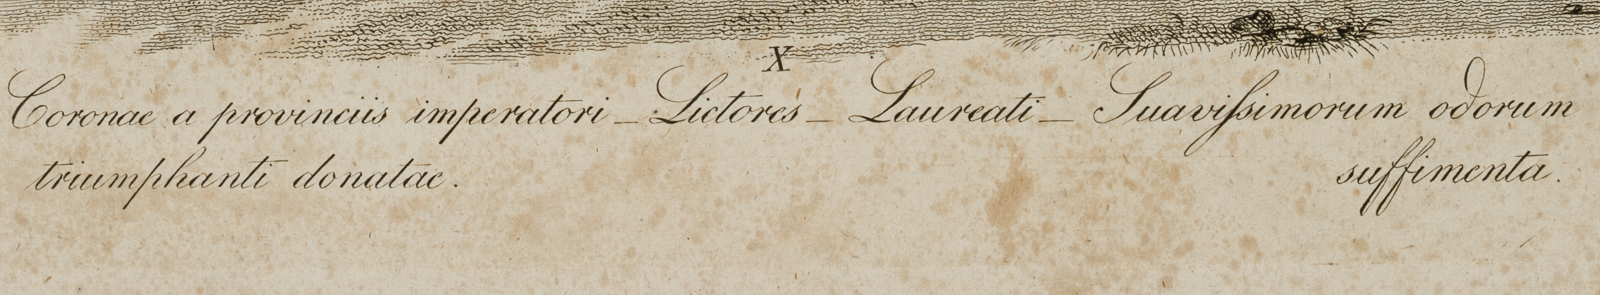 X
Coronae a provinciis imperatori _ Lictores _ Laureati _ Suaviſsimorum odorum
triumphanti donatae. suffimenta.